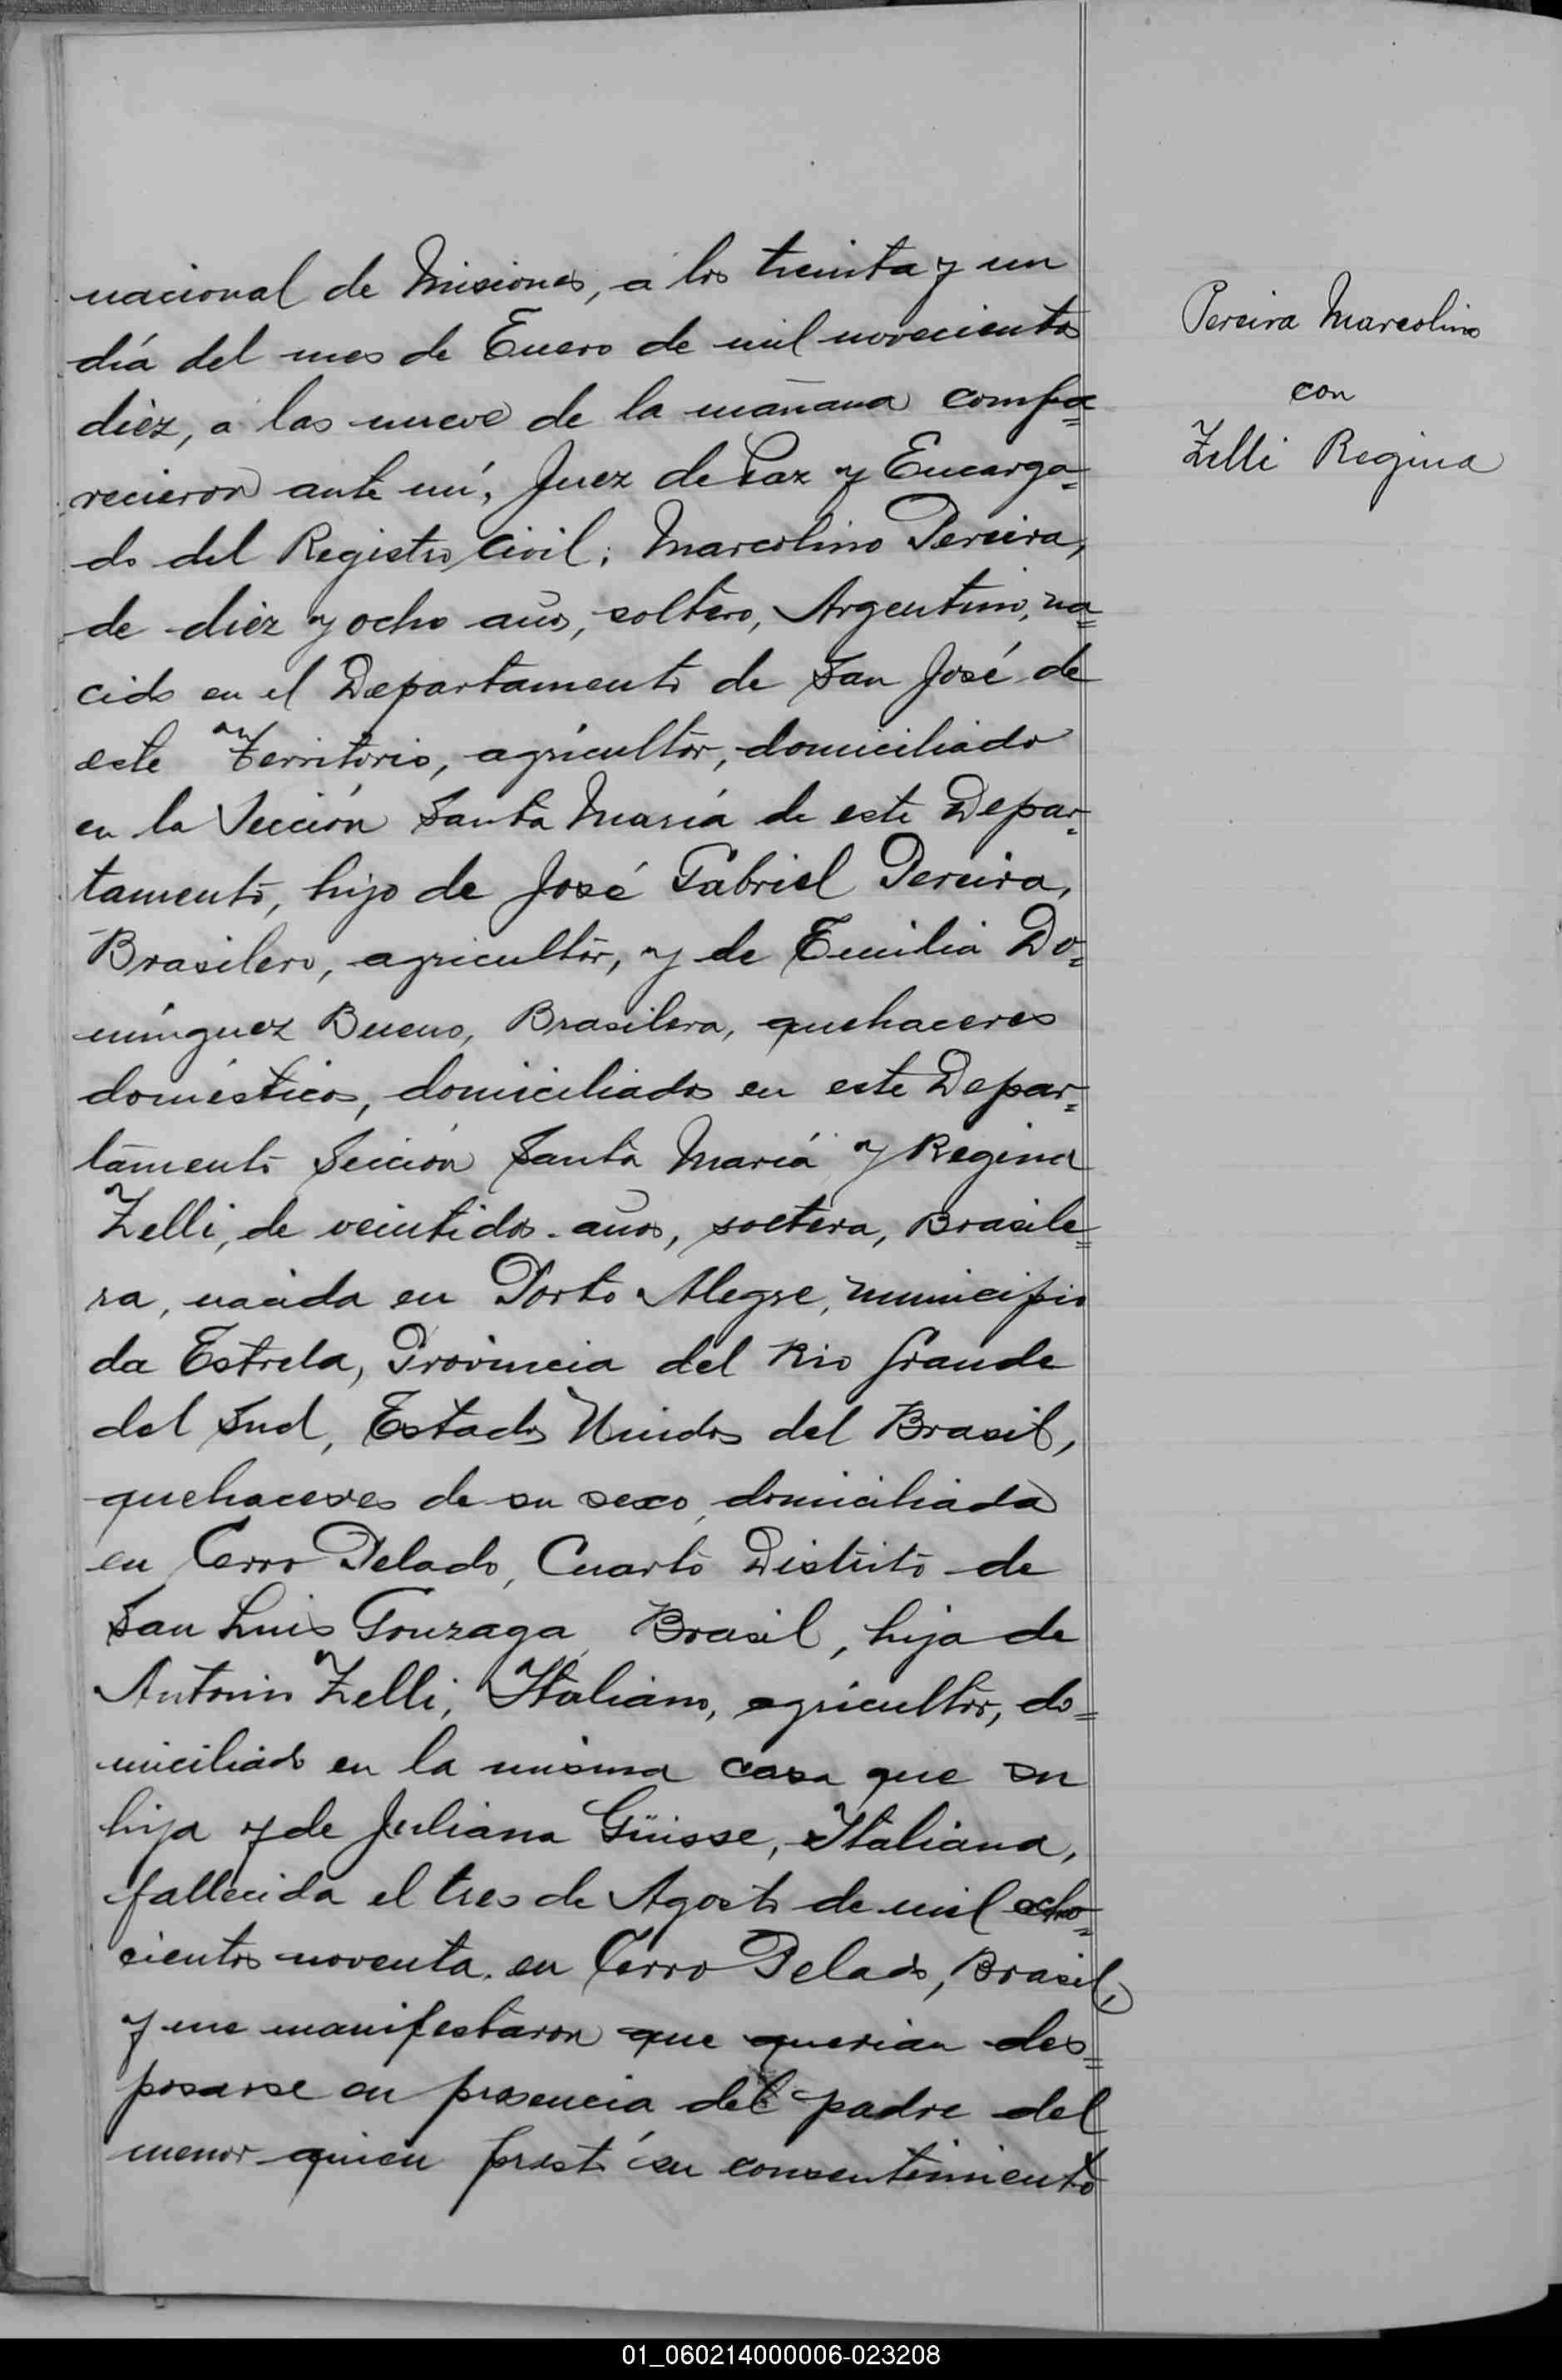 nacional de Misiones, a los treinta y un
día del mes de Enero de mil novecientos
diez, a las nueve de la mañana compa=
recieron ante mí, Juez de Paz y Encarga=
do del Registro Civil; Marcolino Pereira,
de diez y ocho años, soltero, Argentino, na=
cido en el Departamento de San José de
este Territorio, agricultor, domiciliado
en la Sección Santa María de este Depar=
tamento, hijo de José Gabriel Pereira,
Brasilero, agricultor, y de Emilia Do=
mínguez Bueno, Brasilera, quehaceres
domésticos, domiciliados en este Depar=
tamento Sección Santa María y Regina
Zelli, de veintidos años, soltera, Brasile=
ra, nacida en Porto Alegre, municipio
da Estrela, Provincia del Rio Grande
del Sud, Estados Unidos del Brasil,
quehaceres de su sexo, domiciliada
en Cerro Pelado, Cuarto Distrito de
San Luis Gonzaga, Brasil, hija de
Antonio Zelli, Italiano, agricultor, do=
miciliado en la misma casa que su
hija y de Juliana Güisse, Italiana,
fallecida el tres de Agosto de mil ocho=
cientos noventa en Cerro Pelado, Brasil,
y me manifestaron que querian des=
posarse en presencia del padre del
menor quien prestó su consentimiento
Pereira Marcolino
con
Zelli Regina
01_060214000006-023208